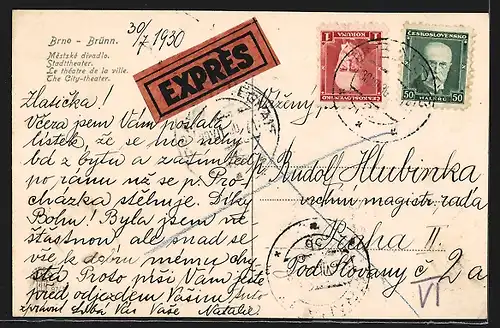 30/7 1930
Brno - Brünn.
Městské divadlo.
Stadttheater.
Le théâtre de la ville.
The City-theater.
EXPRÈS
1 KORUNA 1
ČESKOSLOVENSKO
ČESKOSLOVENSKO
50 HALÉŘŮ 50
Zlatíčka!
Včera jsem Vám poslala
lístek, že se nic
bd z bytu a
po ránu už se p. Pro-
cházka stěhuje. Díky
Bohu! Byla jsem ne-
šťastnou, ale snad se
vše k mému
Proto píši Vám ještě
před odjezdem Vaším tuto
zprávu. Líbá Vás Vaše Natalie
Vážený pan
Rudolf Hlubinka
vrchní magistr. rada
Praha II.
Pod Slovany č 2a
VI